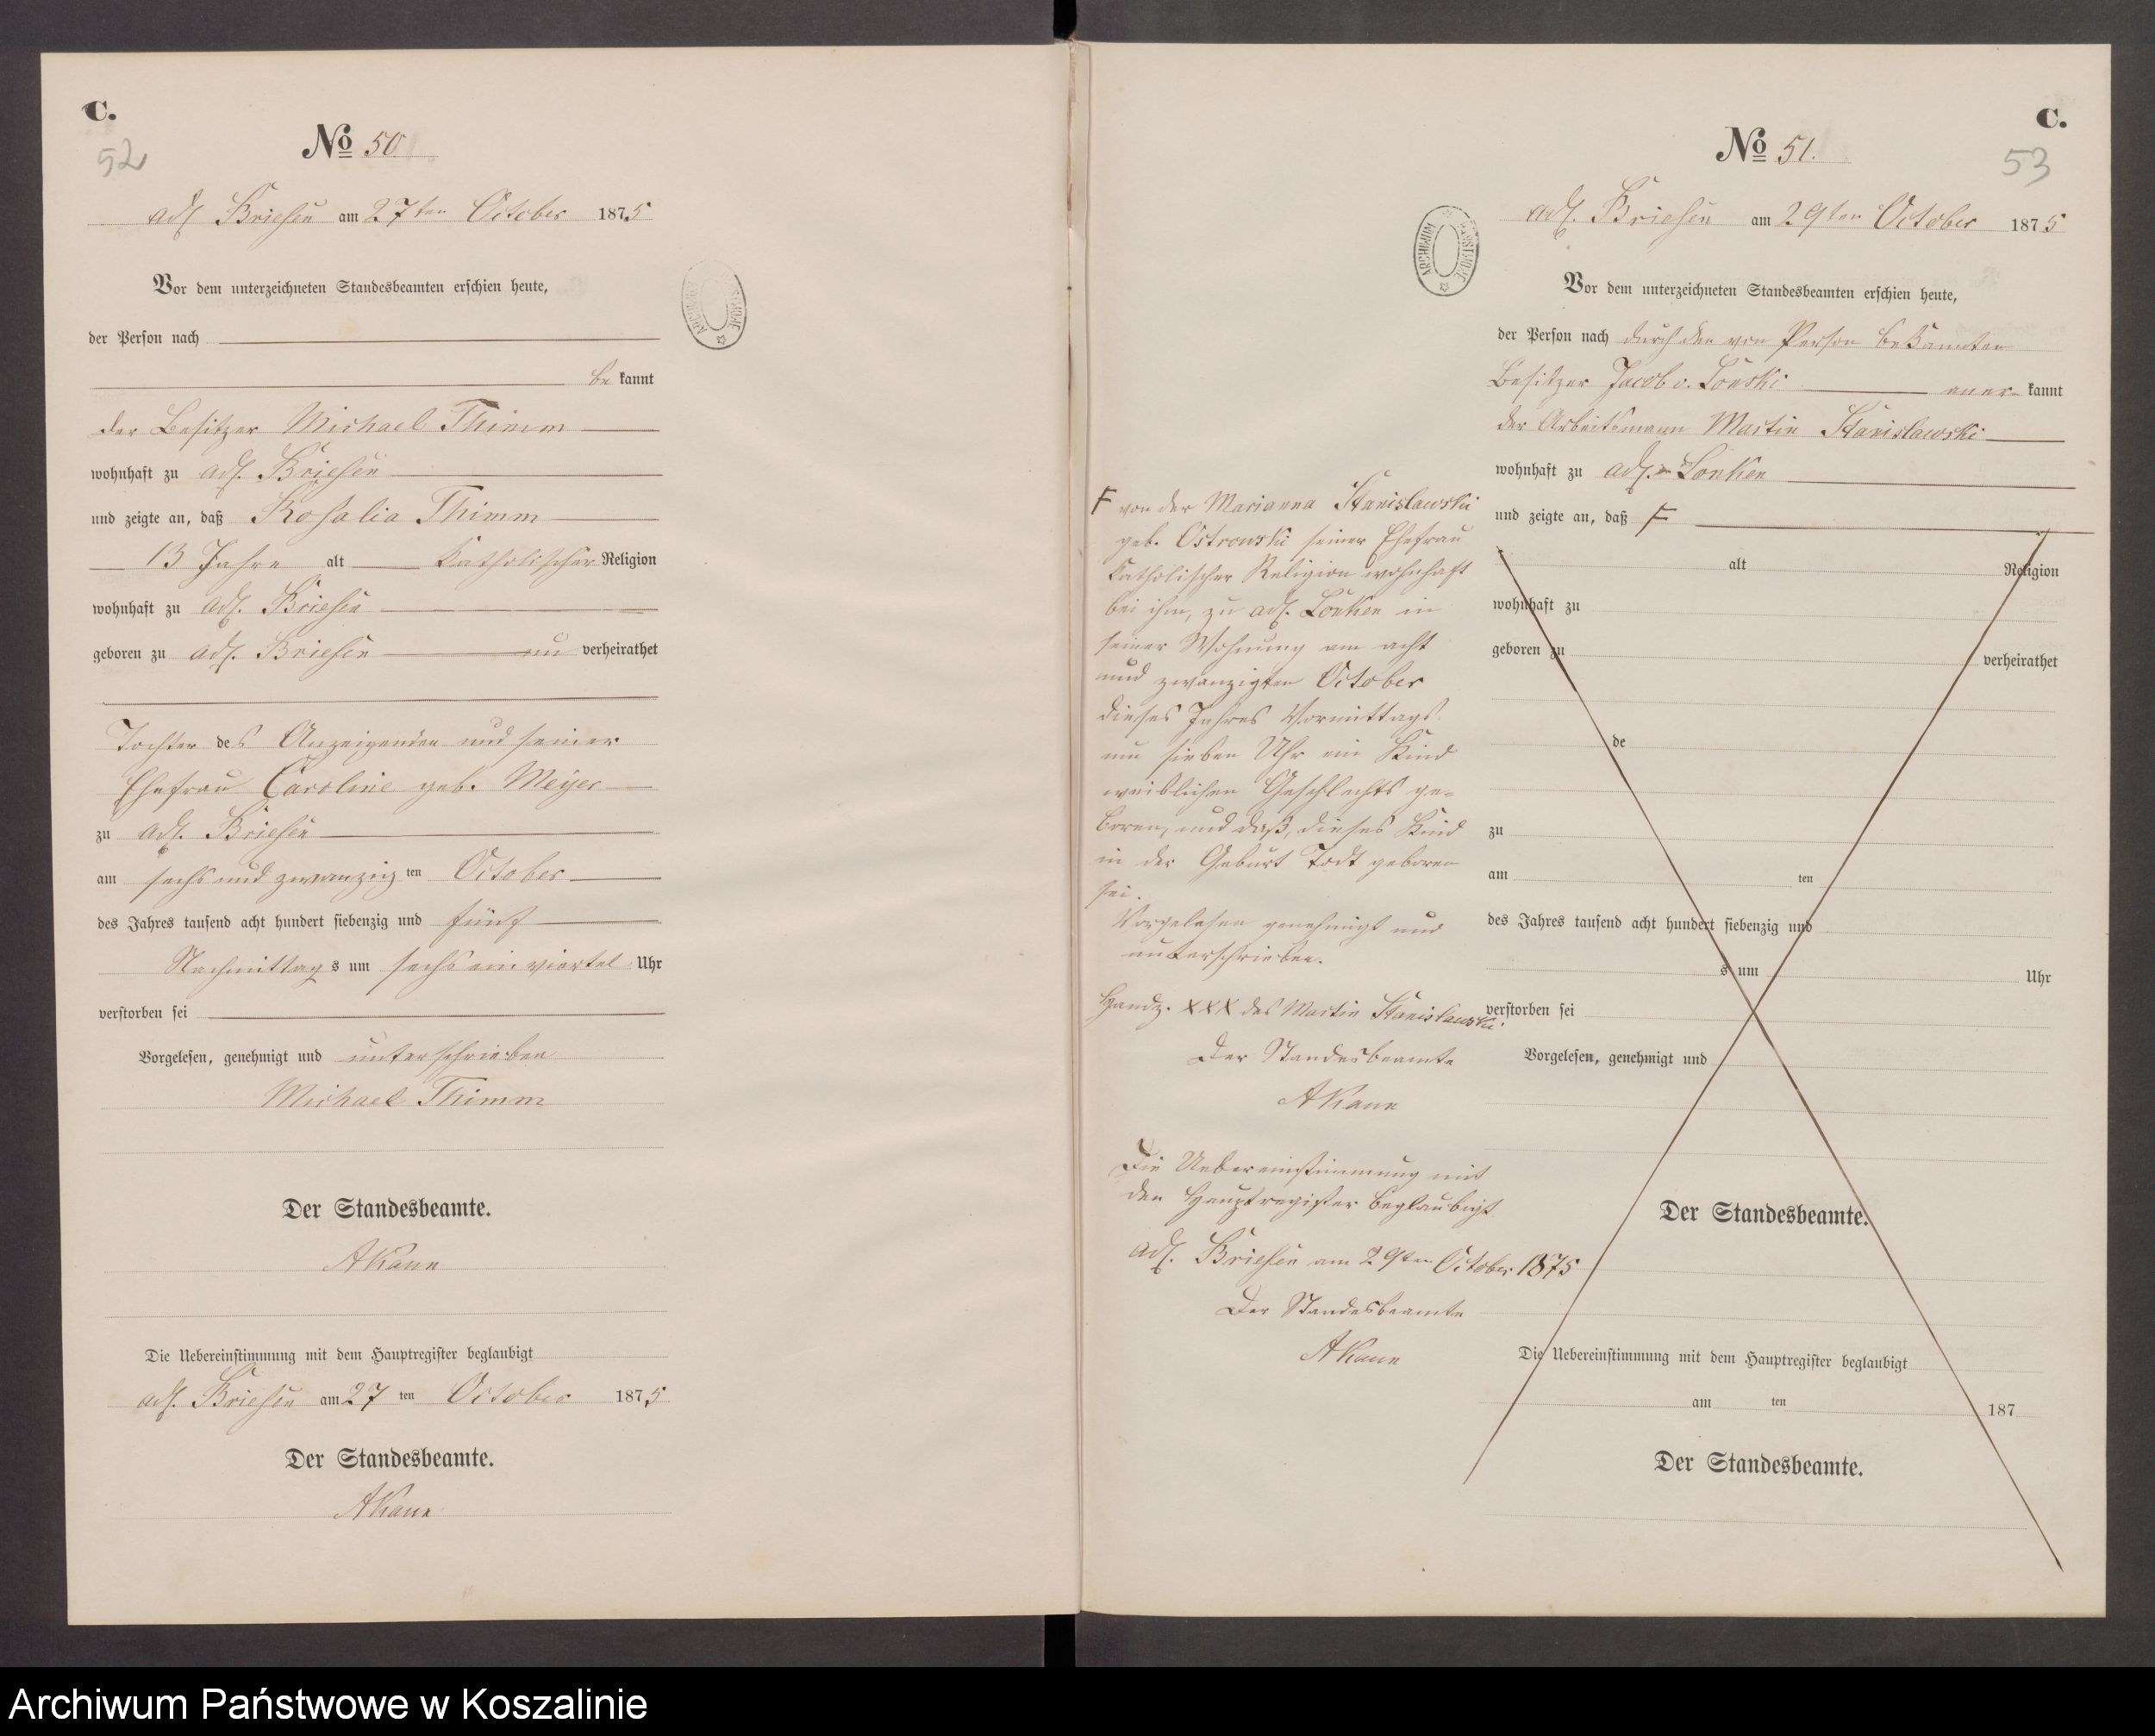 C.
52
No 50.
adl Briesen am 27ten October 1875
Vor dem unterzeichneten Standesbeamten erschien heute,
der Person nach
be kannt
der Besitzer Michael Thimm
wohnhaft zu adl. Briesen
und zeigte an, daß Rosalia Thimm
13 Jahre alt katholischer Religion
wohnhaft zu adl. Briesen
geboren zu adl. Briesen un verheirathet
Tochter des Anzeigenden und seiner
Ehefrau Caroline geb. Meyer
zu adl. Briesen
am sechs und zwanzig ten October
des Jahres tausend acht hundert siebenzig und fünf
Nachmittag s um sechs ein viertel Uhr
verstorben sei
Vorgelesen, genehmigt und unterschrieben
Michael Thimm
Der Standesbeamte.
AKann
Die Uebereinstimmung mit dem Hauptregister beglaubigt
adl. Briesen am 27 ten October 1875
Der Standesbeamte.
AKann
ARCHIWUM
C.
53
No 51.
adl. Briesen am 29ten October 1875
ARCHIWUM
Vor dem unterzeichneten Standesbeamten erschien heute,
der Person nach durch den von Person bekannten
Besitzer Jacob v. Lonski aner- kannt
der Arbeitsmann Martin Stanislawski
wohnhaft zu adl. Lonken
und zeigte an, daß F
alt Religion
wohnhaft zu
geboren zu verheirathet
de
zu
am ten
des Jahres tausend acht hundert siebenzig und
s um Uhr
verstorben sei
Vorgelesen, genehmigt und
Der Standesbeamte.
Die Uebereinstimmung mit dem Hauptregister beglaubigt
am ten 187
Der Standesbeamte.
F von der Marianna Stanislawski
geb. Ostrowski seiner Ehefrau
katholischer Religion wohnhaft
bei ihm, zu adl. Lonken in
seiner Wohnung am acht
und zwanzigten October
dieses Jahres Vormittags
um sieben Uhr ein Kind
weiblichen Geschlechts ge-
boren, und daß, dieses Kind
in der Geburt Todt geboren
sei.
Vorgelesen genehmigt und
unterschrieben.
Handz. XXX des Martin Stanislawski
Der Standesbeamte
AKann
Die Uebereinstimmung mit
den Hauptregister beglaubigt
adl. Briesen am 29ten October 1875
Der Standesbeamte
AKann
Archiwum Państwowe w Koszalinie